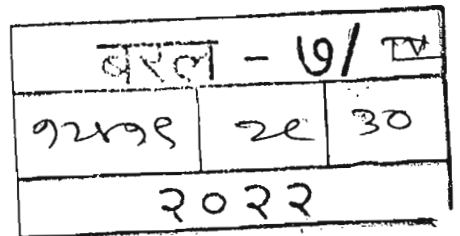 बरल - ७/ IV
१२४१९ २९ ३०
२०२२